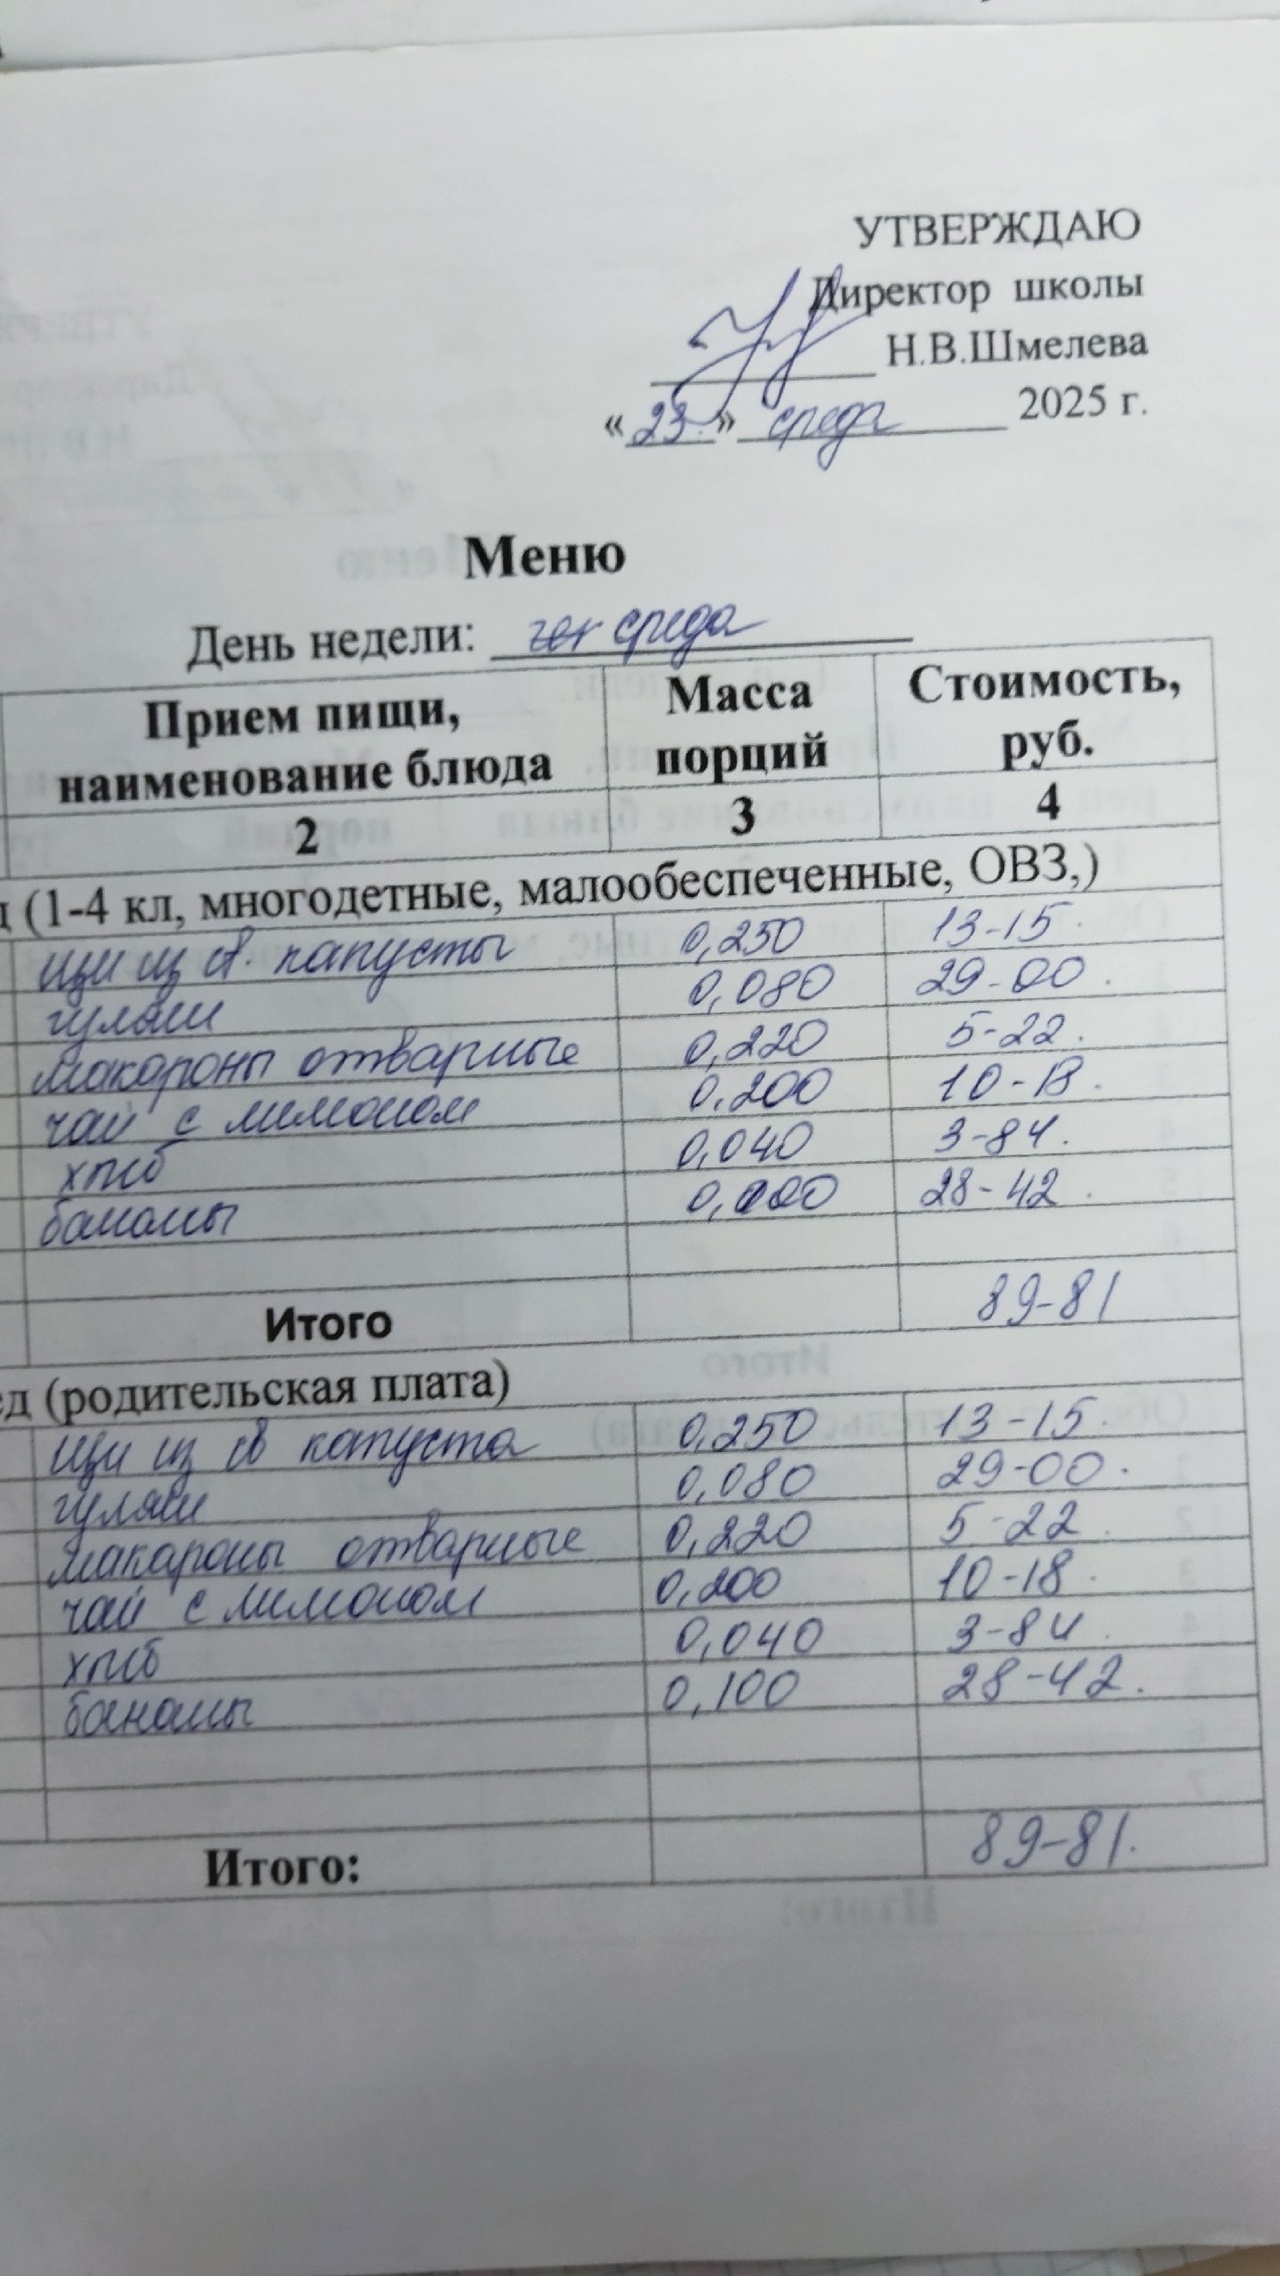 УТВЕРЖДАЮ
Директор школы
Н.В.Шмелева
«23» среда 2025 г.
Меню
День недели: чет среда
Прием пищи, наименование блюда Масса порций Стоимость, руб.
2 3 4
д (1-4 кл, многодетные, малообеспеченные, ОВЗ,)
щи из св. капусты 0,250 13-15
гуляш 0,080 29-00
макароны отварные 0,220 5-22
чай с лимоном 0,200 10-18
хлеб 0,040 3-84
бананы 28-42
Итого 89-81
ед (родительская плата)
щи из св капуста 0,250 13-15
гуляш 0,080 29-00
макароны отварные 0,220 5-22
чай с лимоном 0,200 10-18
хлеб 0,040 3-84
бананы 0,100 28-42
Итого: 89-81